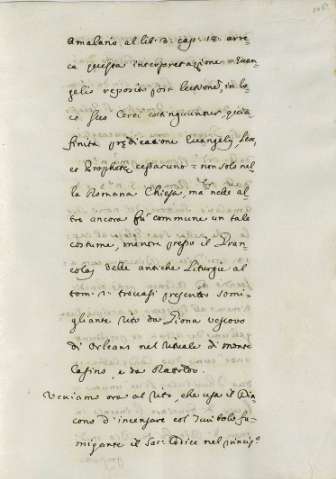 Amalario al lib: 3: cap: 18: arre-
ca questa interpretazione = Evan-
gelio reposito post lectionem, in lo-
co suo Cerei extinguuntur, quia
finita prędicatione Evangelij Lex,
et Prophetę cessarunt = non solo nel-
la Romana Chiesa, ma nelle al-
tre ancora fù commune un tale
costume, mentre presso il Fran-
colas delle antiche Liturgie al
tom: 1: trovasi presentes somi-
gliante rito da Giona vescovo
di Orleans nel rituale di monte
Casino, e da
Veniamo ora al rito, che usa il Dia-
cono d'incensare col Turibolo fu-
migante il Sac: Codice nel princip:º